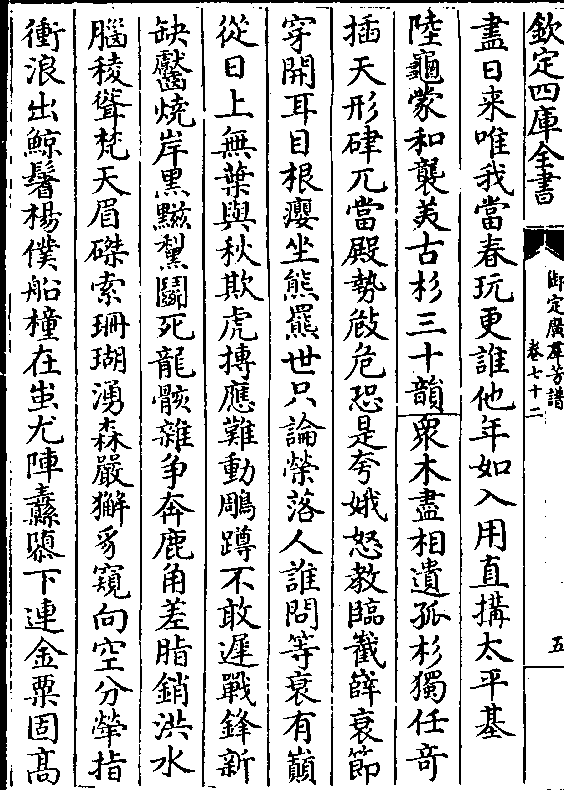 欽定四庫全書
御定廣羣芳譜
卷七十二
五
盡日来唯我當春玩更誰他年如入用直搆太平基
陸龜蒙和襲羙古杉三十韻衆木盡相遺孤杉獨任奇
插天形硉兀當殿勢㩻危恐是夸娥怒教臨嶻嶭衰節
穿開耳目根癭坐熊羆世只論榮落人誰問等衰有巔
從日上無葉與秋欺虎摶應難動鵰蹲不敢遲戰鋒新
缺齾燒岸黑黳黧鬭死龍骸雜争奔鹿角差脂銷洪水
腦稜聳梵天眉磔索珊瑚湧森嚴獬豸窺向空分犖指
衝浪出鯨鬐楊僕船橦在蚩尤陣纛隳下連金粟固髙